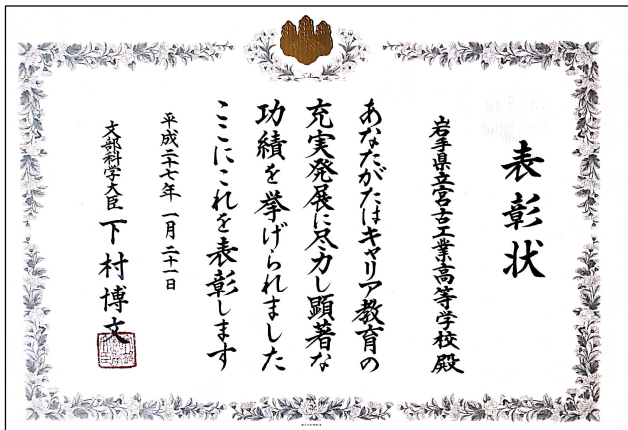 表彰状
岩手県立宮古工業高等学校 殿
あなたがたはキャリア教育の
充実発展に尽力し顕著な
功績を挙げられました
ここにこれを表彰します
平成二十七年 一月 二十一日
文部科学大臣 下村博文